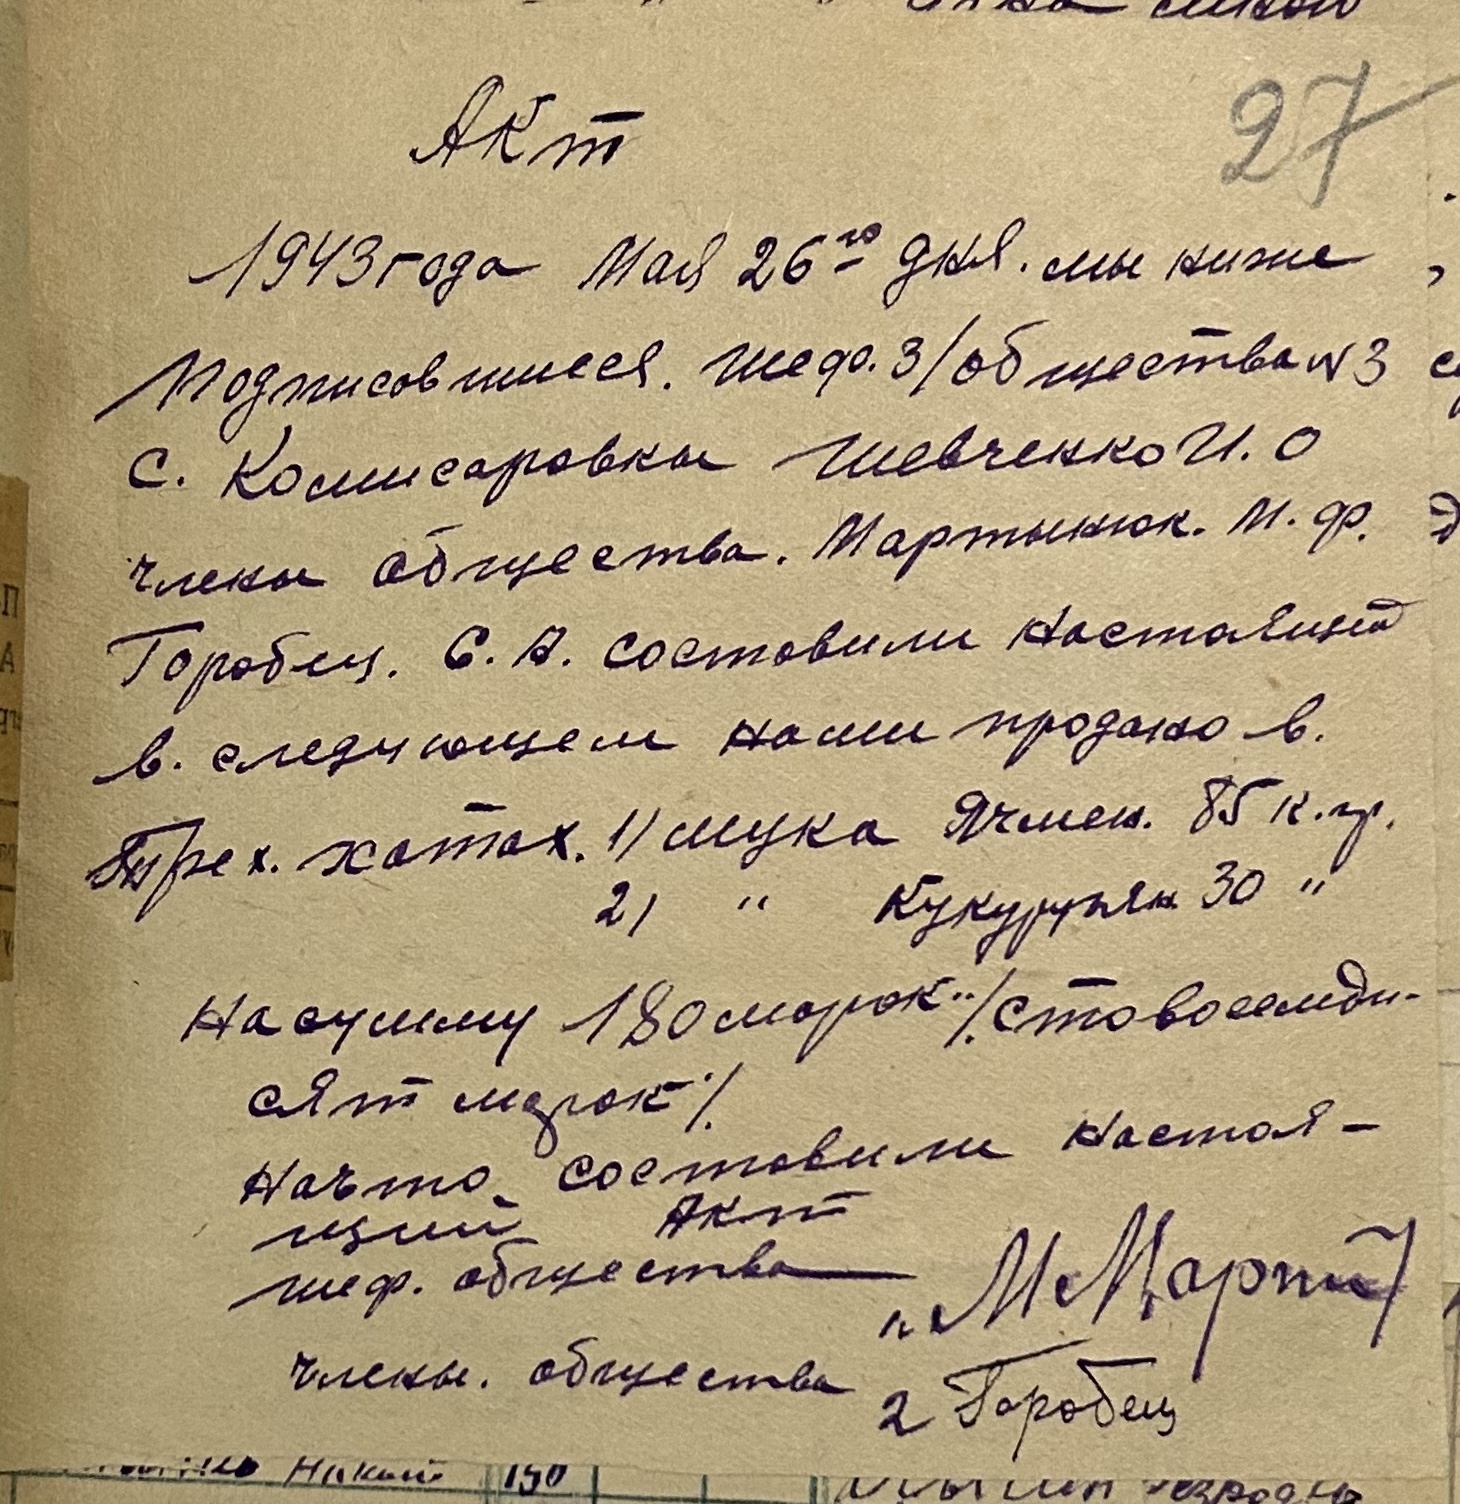 27
Акт
1943 года Мая 26го дня. мы ниже
Подписовшиеся. шеф. З/общества N3
с. Комисаровки Шевченко И.О
члены общества. Мартынюк. М.Ф.
Горобец. С.А. составили настоящий
в. следующем нами продано в.
Трех. хатах. 1) мука Ячмен. 85 к.гр.
2) " Кукурузян 30 "
На сумму 180 марок /. стовосемди-
сят марок /.
На что составили настоя-
щий Акт
шеф. общества
М Марти
члены. общества
2 Горобец
190